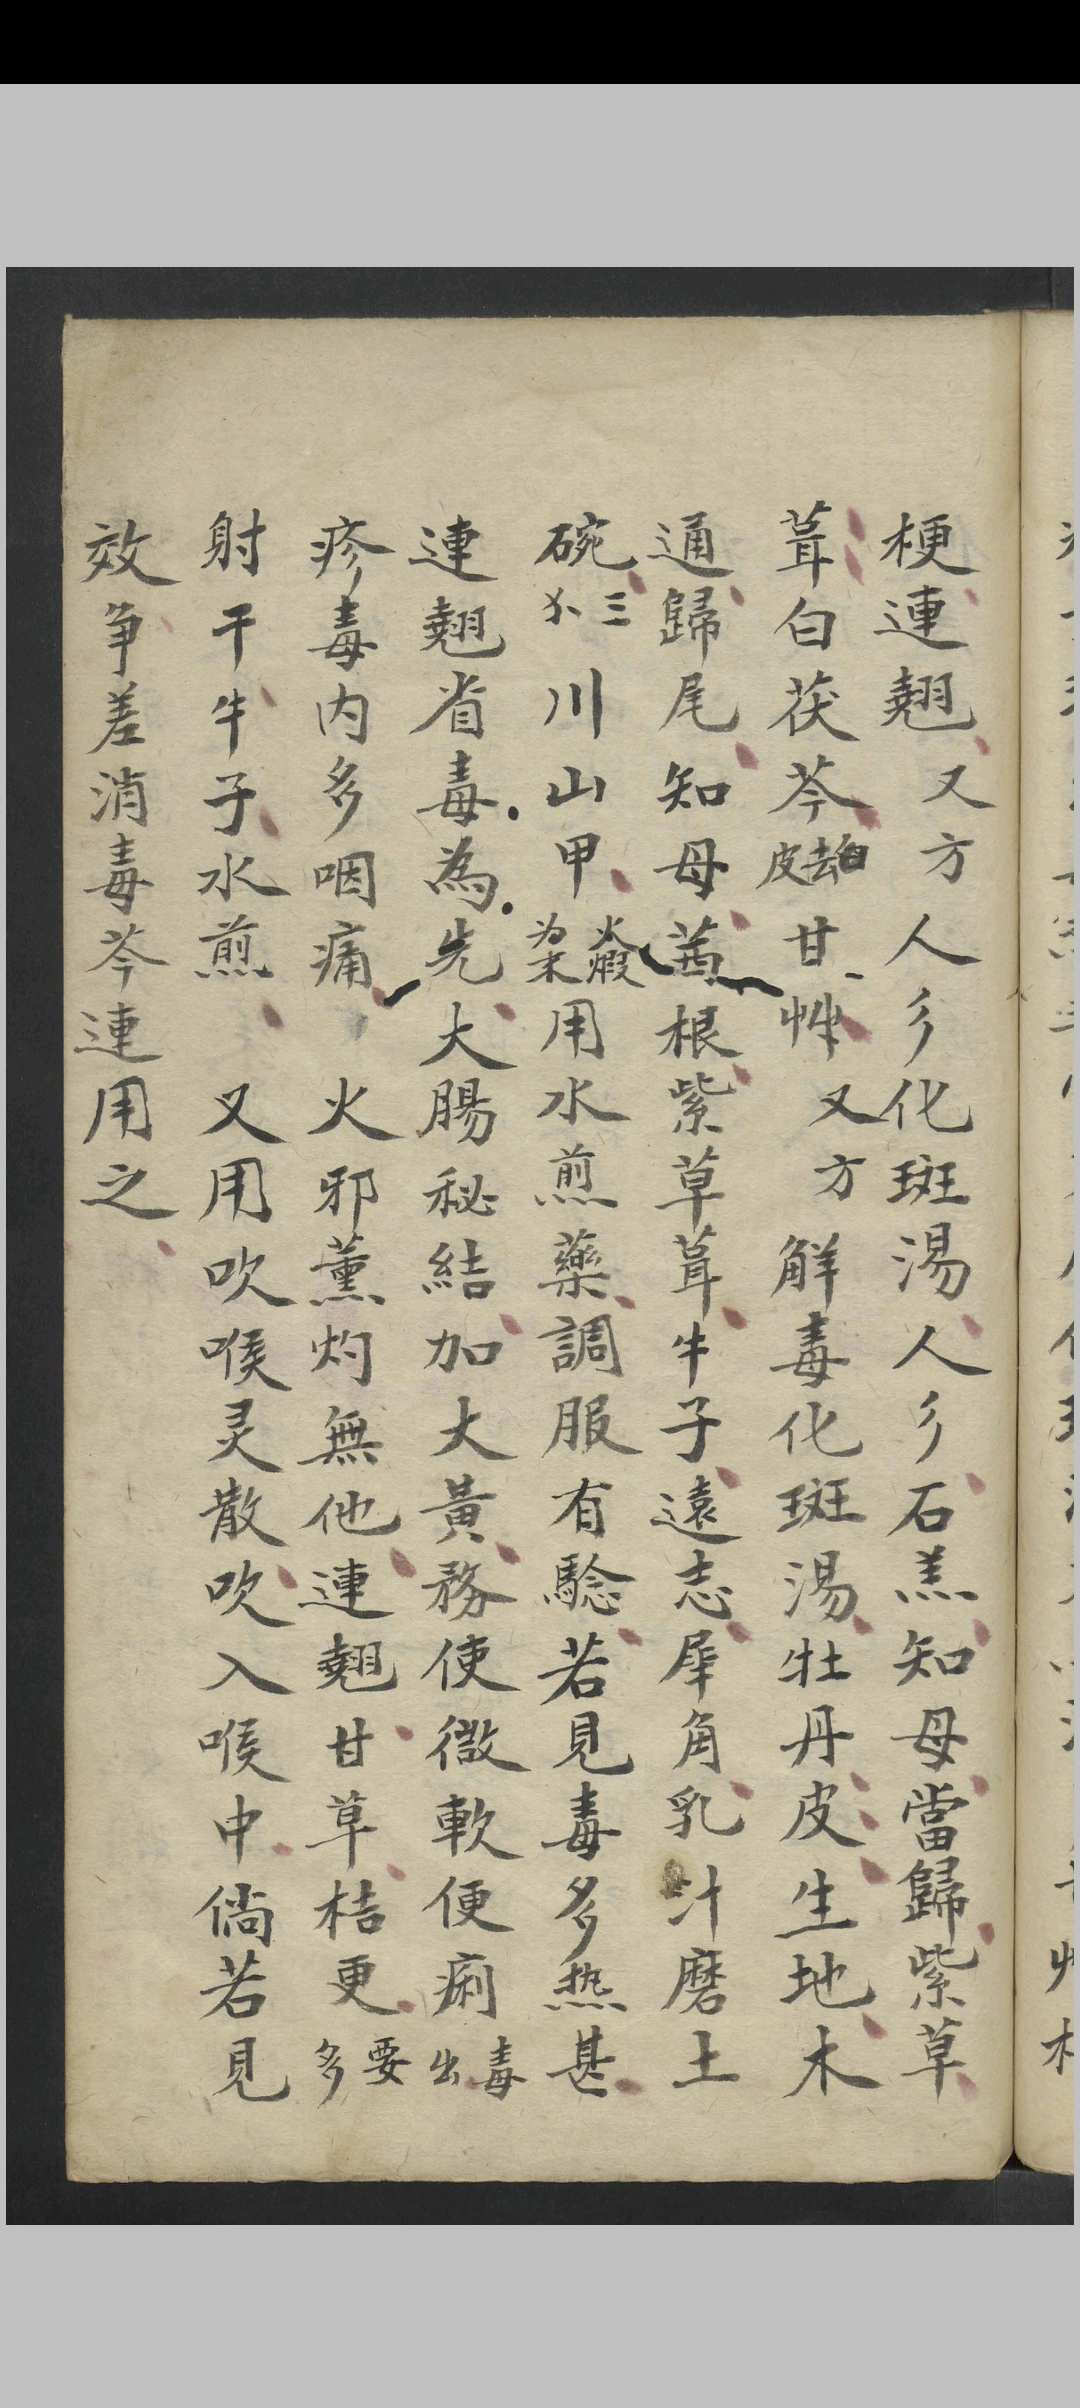 梗連翹又方人彡化斑湯人彡石羔知母當歸紫草
茸白茯苓去白皮甘艸又方解毒化斑湯牡丹皮生地木
通歸尾知母茜根紫草茸牛子遠志犀角乳汁磨土
碗三分川山甲火煅为末用水煎藥調服有騐若見毒多热甚
連翹省毒為先大腸秘結加大黃務使微軟便痢毒出
疹毒内多咽痛火邪薰灼無他連翹甘草桔更要多
射干牛子水煎又用吹喉灵散吹入喉中倘若見
效争差消毒芩連用之